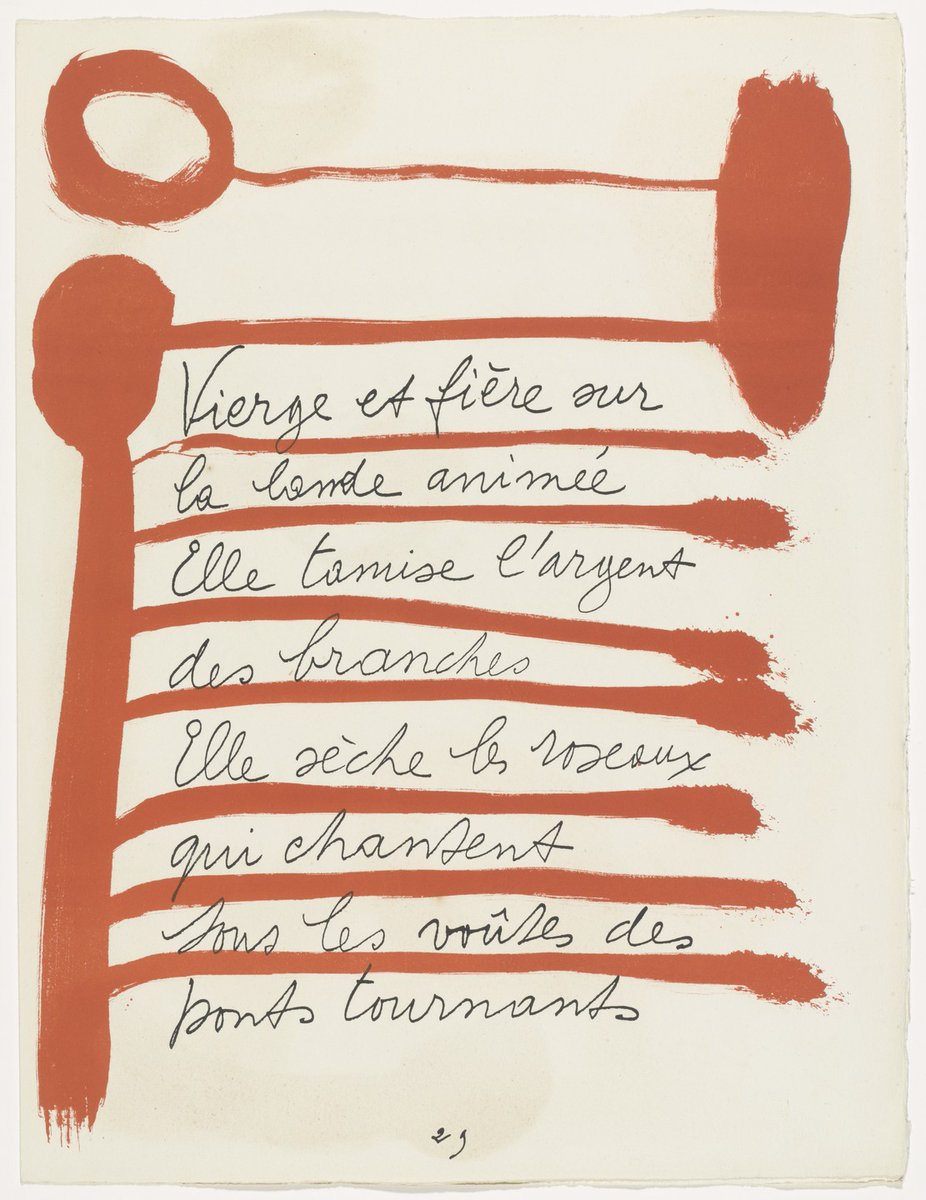 Vierge et fière sur
la bande animée
Elle tamise l'argent
des branches
Elle sèche les roseaux
qui chantent
sous les voûtes des
ponts tournants
29